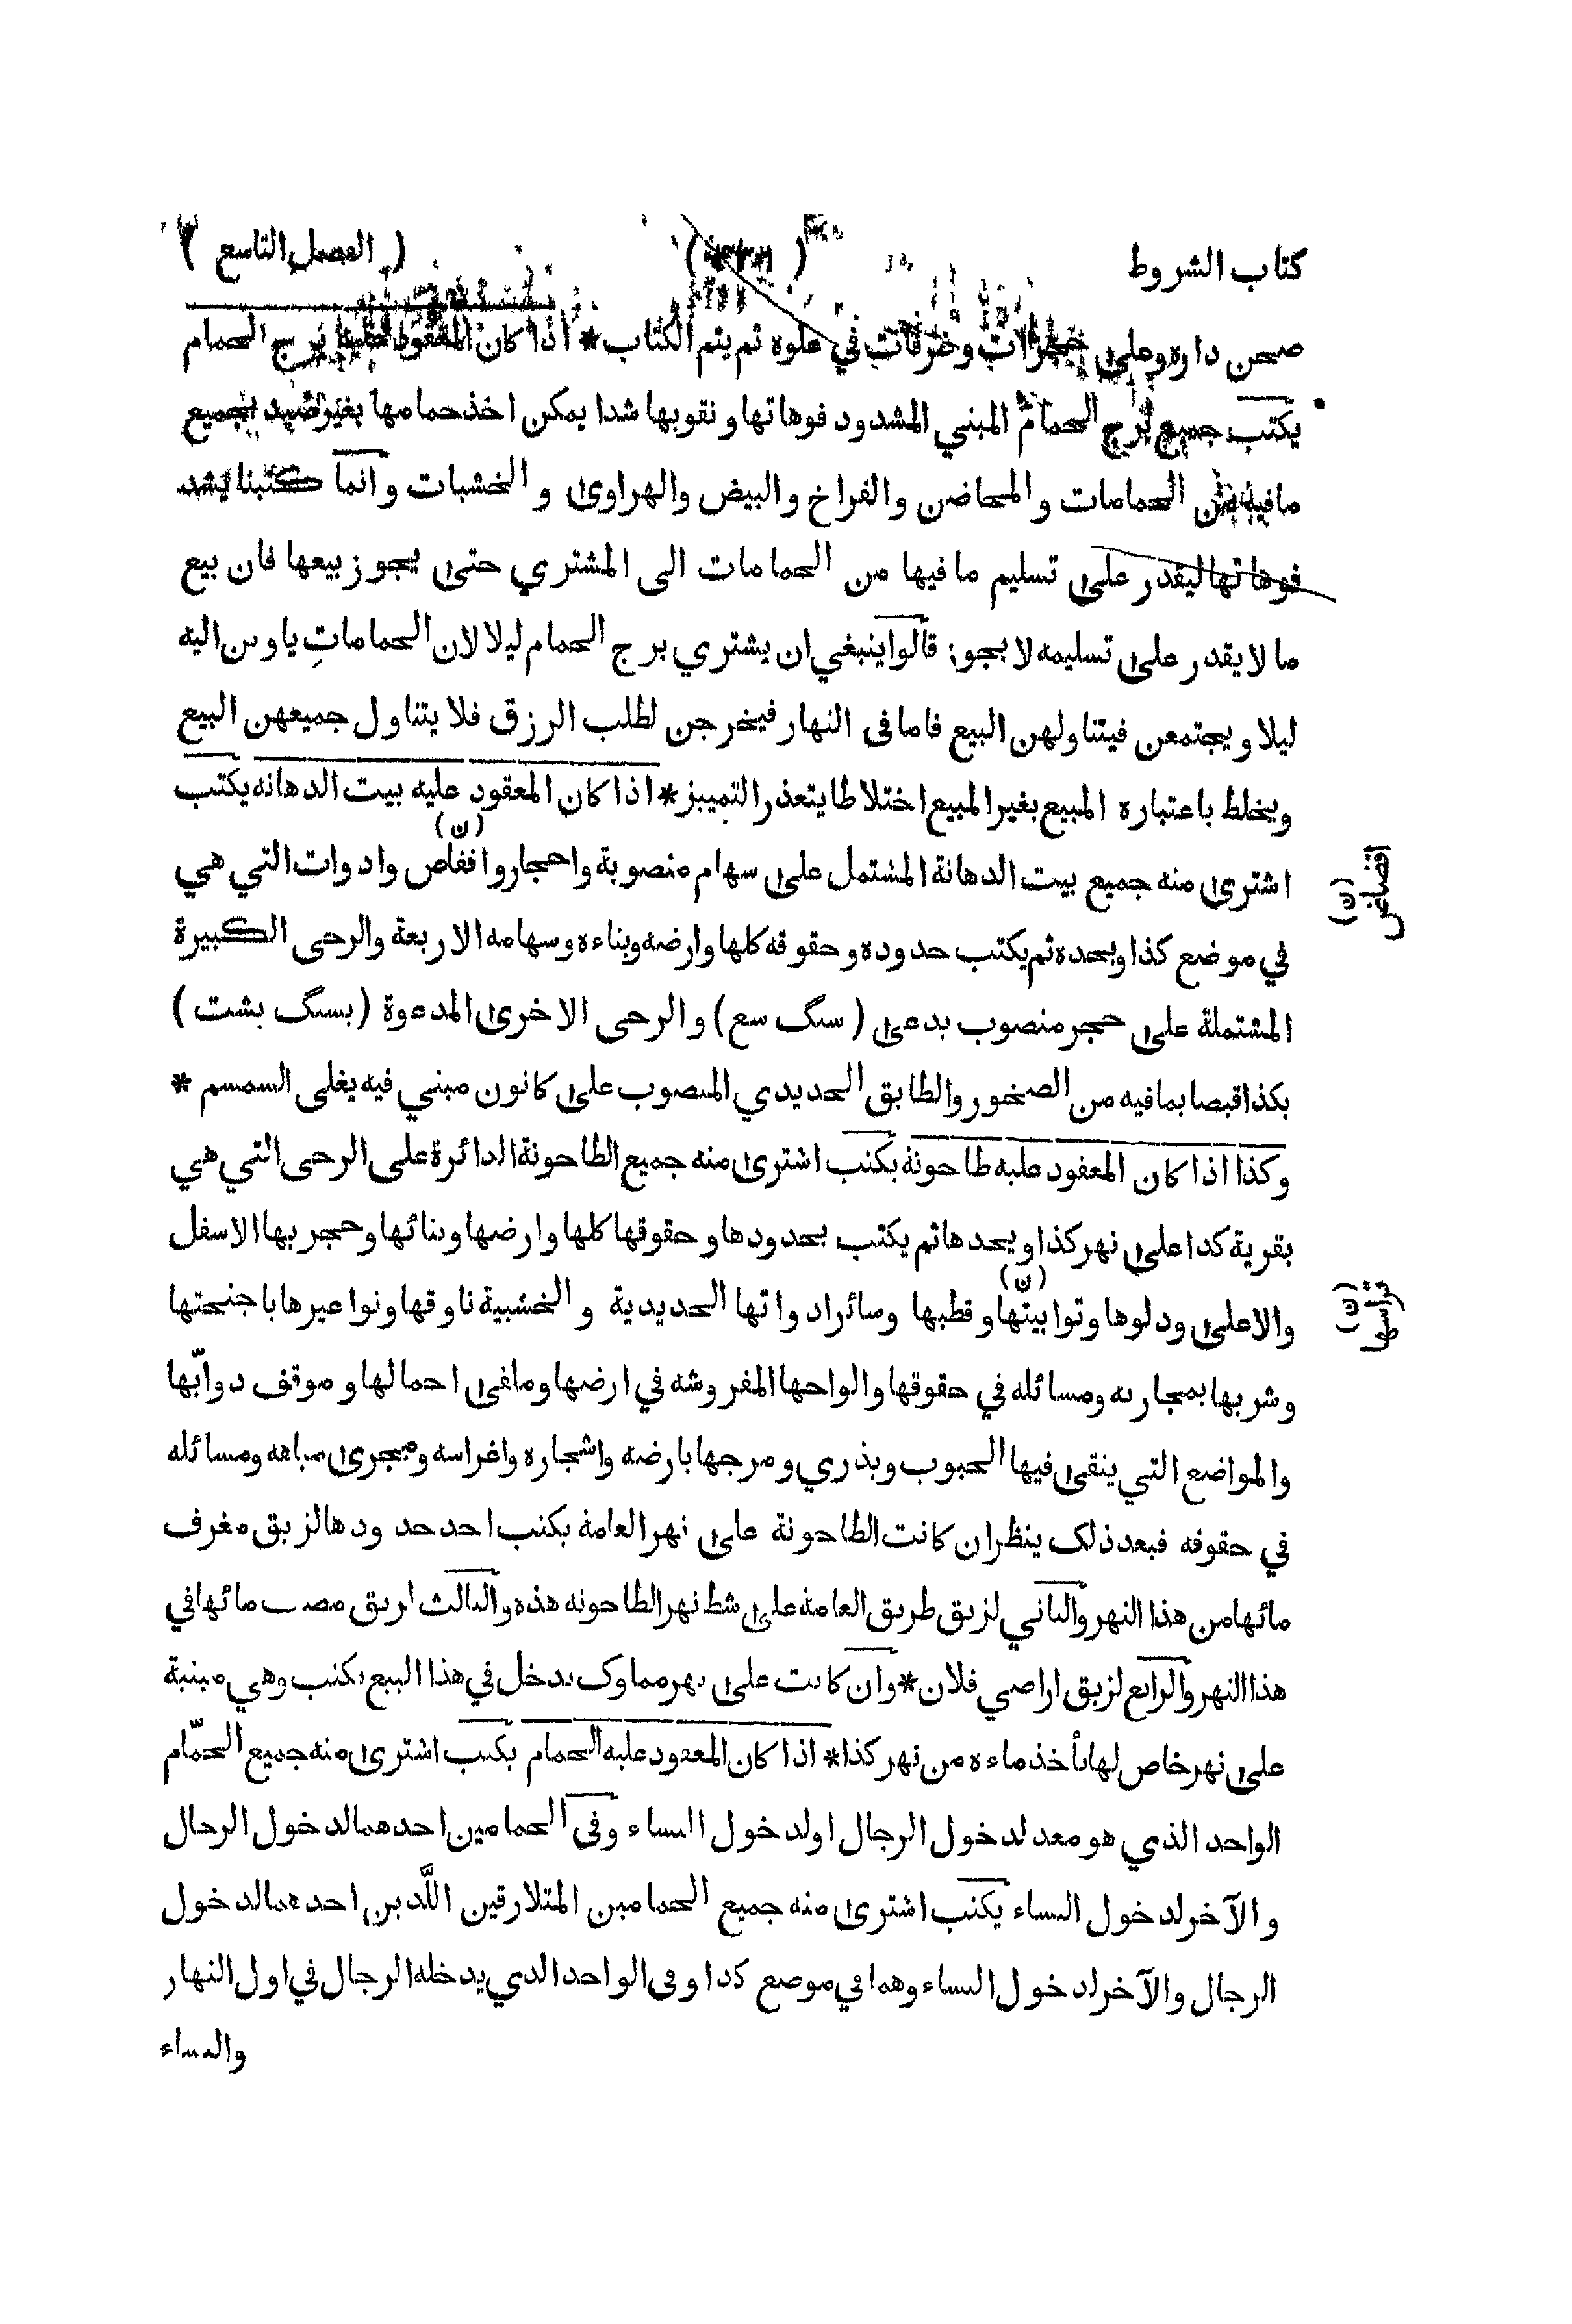 كتاب الشروط ( ) ( الفصل التاسع )
صحن داره وعلى حجرات وغرفات في علوه ثم يتم الكتاب * اذا كان المعقود عليه برج الحمام
يكتب جميع برج الحمام المبني المشدود فوهاتها ونقوبها شدا يمكن اخذ حمامها بغير صيد بجميع
مافيه من الحمامات والمحاضن والفراخ والبيض والهراوى والخشبات وانما كتبنا بشد
فوهاتها ليقدر على تسليم مافيها من الحمامات الى المشتري حتى يجوز بيعها فان بيع
ما لا يقدر على تسليمه لا يجوز قالوا ينبغي ان يشتري برج الحمام ليلا لان الحمامات ياوين اليه
ليلا ويجتمعن فيتناولهن البيع فاما فى النهار فيخرجن لطلب الرزق فلا يتناول جميعهن البيع
ويخلط باعتباره المبيع بغير المبيع اختلاطا يتعذر التمييز * اذا كان المعقود عليه بيت الدهانه يكتب
اشترى منه جميع بيت الدهانة المشتمل على سهام منصوبة واحجار واقفاص (ن) وادوات التي هي
اقصاص (ن)
في موضع كذا ويحده ثم يكتب حدوده وحقوقه كلها وارضه وبناءه وسهامه الاربعة والرحى الكبيرة
المشتملة على حجر منصوب يدعى ( سنگ سع ) والرحى الاخرى المدعوة ( بسنگ بشت )
بكذا قبصا بمافيه من الصخور والطابق الحديدي المنصوب على كانون مبني فيه يغلى السمسم *
وكذا اذا كان المعقود عليه طاحونة يكتب اشترى منه جميع الطاحونة الدائرة على الرحى التي هي
بقرية كذا على نهر كذا ويحدها ثم يكتب بحدودها وحقوقها كلها وارضها وبنائها وحجريها الاسفل
والاعلى ودلوها وتوابيتها (ن) وقطبها وسائر ادواتها الحديدية والخشبية ناوقها ونواعيرها باجنحتها
تراسها (ن)
وشربها بمجاريه ومسائله في حقوقها والواحها المفروشه في ارضها وملقى احمالها وموقف دوابّها
والمواضع التي ينقى فيها الحبوب ويذري ومرجها بارضه واشجاره واغراسه ومجرى مياهه ومسائله
في حقوقه فبعد ذلك ينظر ان كانت الطاحونة على نهر العامة يكتب احد حدودها لزيق مغرف
مائها من هذا النهر والثاني لزيق طريق العامة على شط نهر الطاحونه هذه والثالث لزيق مصب مائها في
هذا النهر والرابع لزيق اراضي فلان * وان كانت على نهر مملوك يدخل في هذا البيع يكتب وهي مبنية
على نهر خاص لها يأخذ ماءه من نهر كذا * اذا كان المعقود عليه الحمام يكتب اشترى منه جميع الحمّام
الواحد الذي هو معد لدخول الرجال او لدخول النساء وفى الحمامين احدهما لدخول الرجال
والآخر لدخول النساء يكتب اشترى منه جميع الحمامين المتلازقين اللَّذين احدهما لدخول
الرجال والآخر لدخول النساء وهما في موضع كذا وفى الواحد الذي يدخله الرجال في اول النهار
والنساء